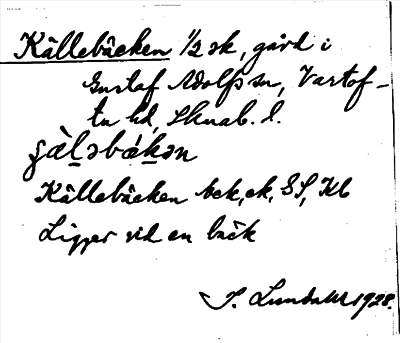 Källebäcken 1/2 sk, gård i
Gustaf Adolfs sn, Vartof-
ta hd, Skarab. l.
Källebäcken
Ligger vid en bäck
S. Lundahl 1928.